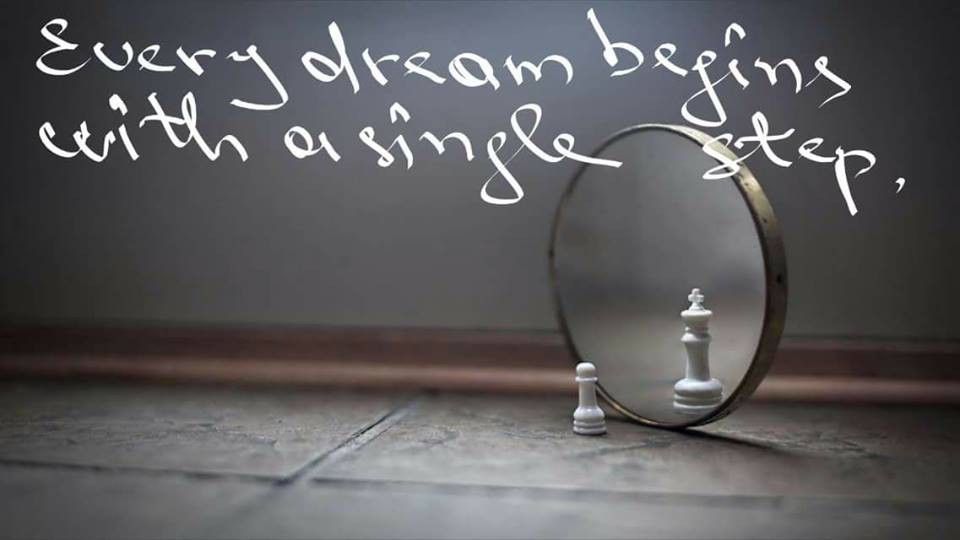 Every dream begins
with a single step.